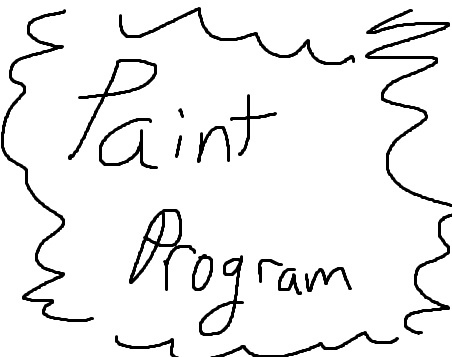 Paint
Program